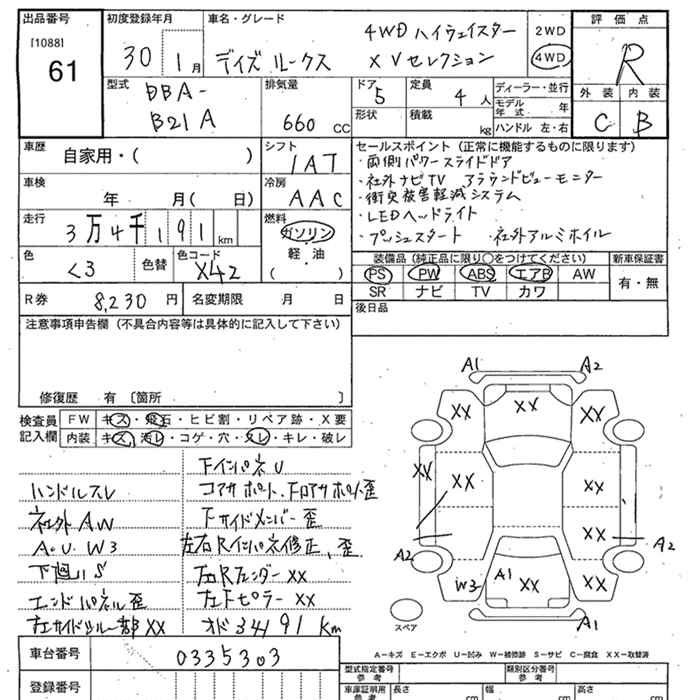 出品番号
[1088]
61
初度登録年月
30 1月
車名・グレード
4WD ハイウェイスター
デイズルークス XVセレクション
2WD
4WD
評価点
R
外装 内装
C B
型式
DBA-
B21A
排気量
660 CC
ドア 5
形状
定員 4人
積載 kg
ディーラー・並行
モデル年式 年
ハンドル 左・右
車歴 自家用・( )
シフト IAT
車検 年 月( 日)
冷房 AAC
走行 3万4千191 km
燃料 ガソリン
軽・油
( )
色 <3
色替
色コード X42
R券 8,230円
名変期限 月 日
セールスポイント (正常に機能するものに限ります)
・両側パワースライドドア
・社外ナビTV アラウンドビューモニター
・衝突被害軽減システム
・LEDヘッドライト
・プッシュスタート ・社外アルミホイル
装備品 (純正品に限り○をつけてください)
PS PW ABS エアB AW
SR ナビ TV カワ
新車保証書
有・無
後日品
注意事項申告欄 (不具合内容等は具体的に記入して下さい)
修復歴 有 〔箇所 〕
検査員記入欄
FW キズ・飛石・ヒビ割・リペア跡・X要
内装 キズ・汚レ・コゲ・穴・スレ・キレ・破レ
ハンドルスレ
社外AW
A・U W3
下廻りS
エンドパネル歪
FインパネU
コアサポート、Fロアサポート歪
Fサイドメンバー歪
左右Rインパネ修正、歪
右Rフェンダー XX
右Fピラー XX
オド 34191 km
A1 A2
XX XX XX
XX XX XX
A2 XX A2
W3 A1 XX XX
A1
スペア
A-キズ E-エクボ U-凹み W-補修跡 S-サビ C-腐食 XX-取替済
車台番号 0335303
登録番号
型式指定番号 参考
類別区分番号 参考
車庫証明用 参考
長さ cm
幅 cm
高さ cm